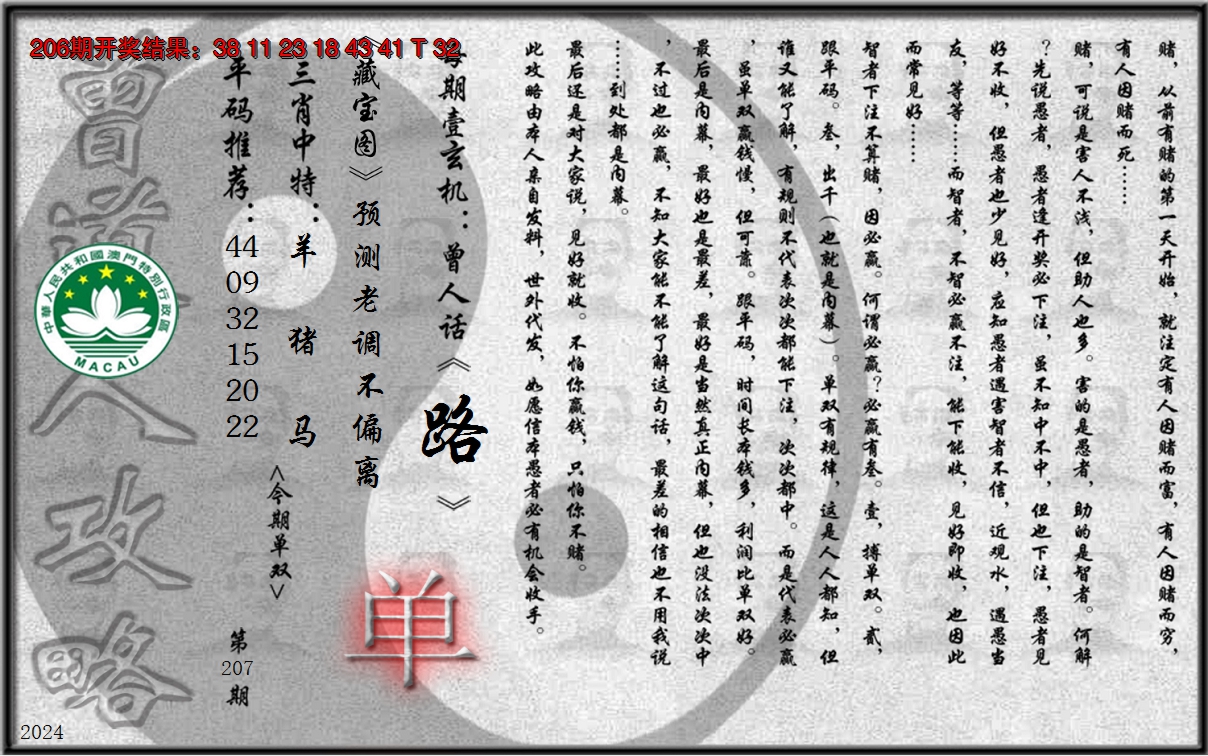 206期开奖结果：38 11 23 18 43 41 T 32
赌，从前有赌的第一天开始，就注定有人因赌而富，有人因赌而穷，
有人因赌而死……
赌，可说是害人不浅，但助人也多。害的是愚者，助的是智者。何解
？先说愚者，愚者逢开奖必下注，虽不知中不中，但也下注，愚者见
好不收，但愚者也少见好，应知愚者遇害智者不信，近观水，遇愚当
友，等等……而智者，不智必赢不注，能下能收，见好即收，也因此
而常见好……
智者下注不算赌，因必赢。何谓必赢？必赢有叁。壹，搏单双。贰，
跟平码。叁，出千（也就是内幕）。单双有规律，这是人人都知，但
谁又能了解，有规则不代表次次都能下注，次次都中。而是代表必赢
，虽单双赢钱慢，但可靠。跟平码，时间长本钱多，利润比单双好。
最后是内幕，最好也是最差，最好是当然真正内幕，但也没法次次中
，不过也必赢，不知大家能不能了解这句话，最差的相信也不用我说
……到处都是内幕。
最后还是对大家说，见好就收。不怕你赢钱，只怕你不赌。
此攻略由本人亲自发料，世外代发，如愿信本愚者必有机会收手。
每期壹玄机：曾人话《路》
《藏宝图》预测老调不偏离
单
三肖中特：羊 猪 马
<今期单双>
平码推荐：44 09 32 15 20 22
第207期
曾道人攻略
中華人民共和國澳門特別行政區
MACAU
2024